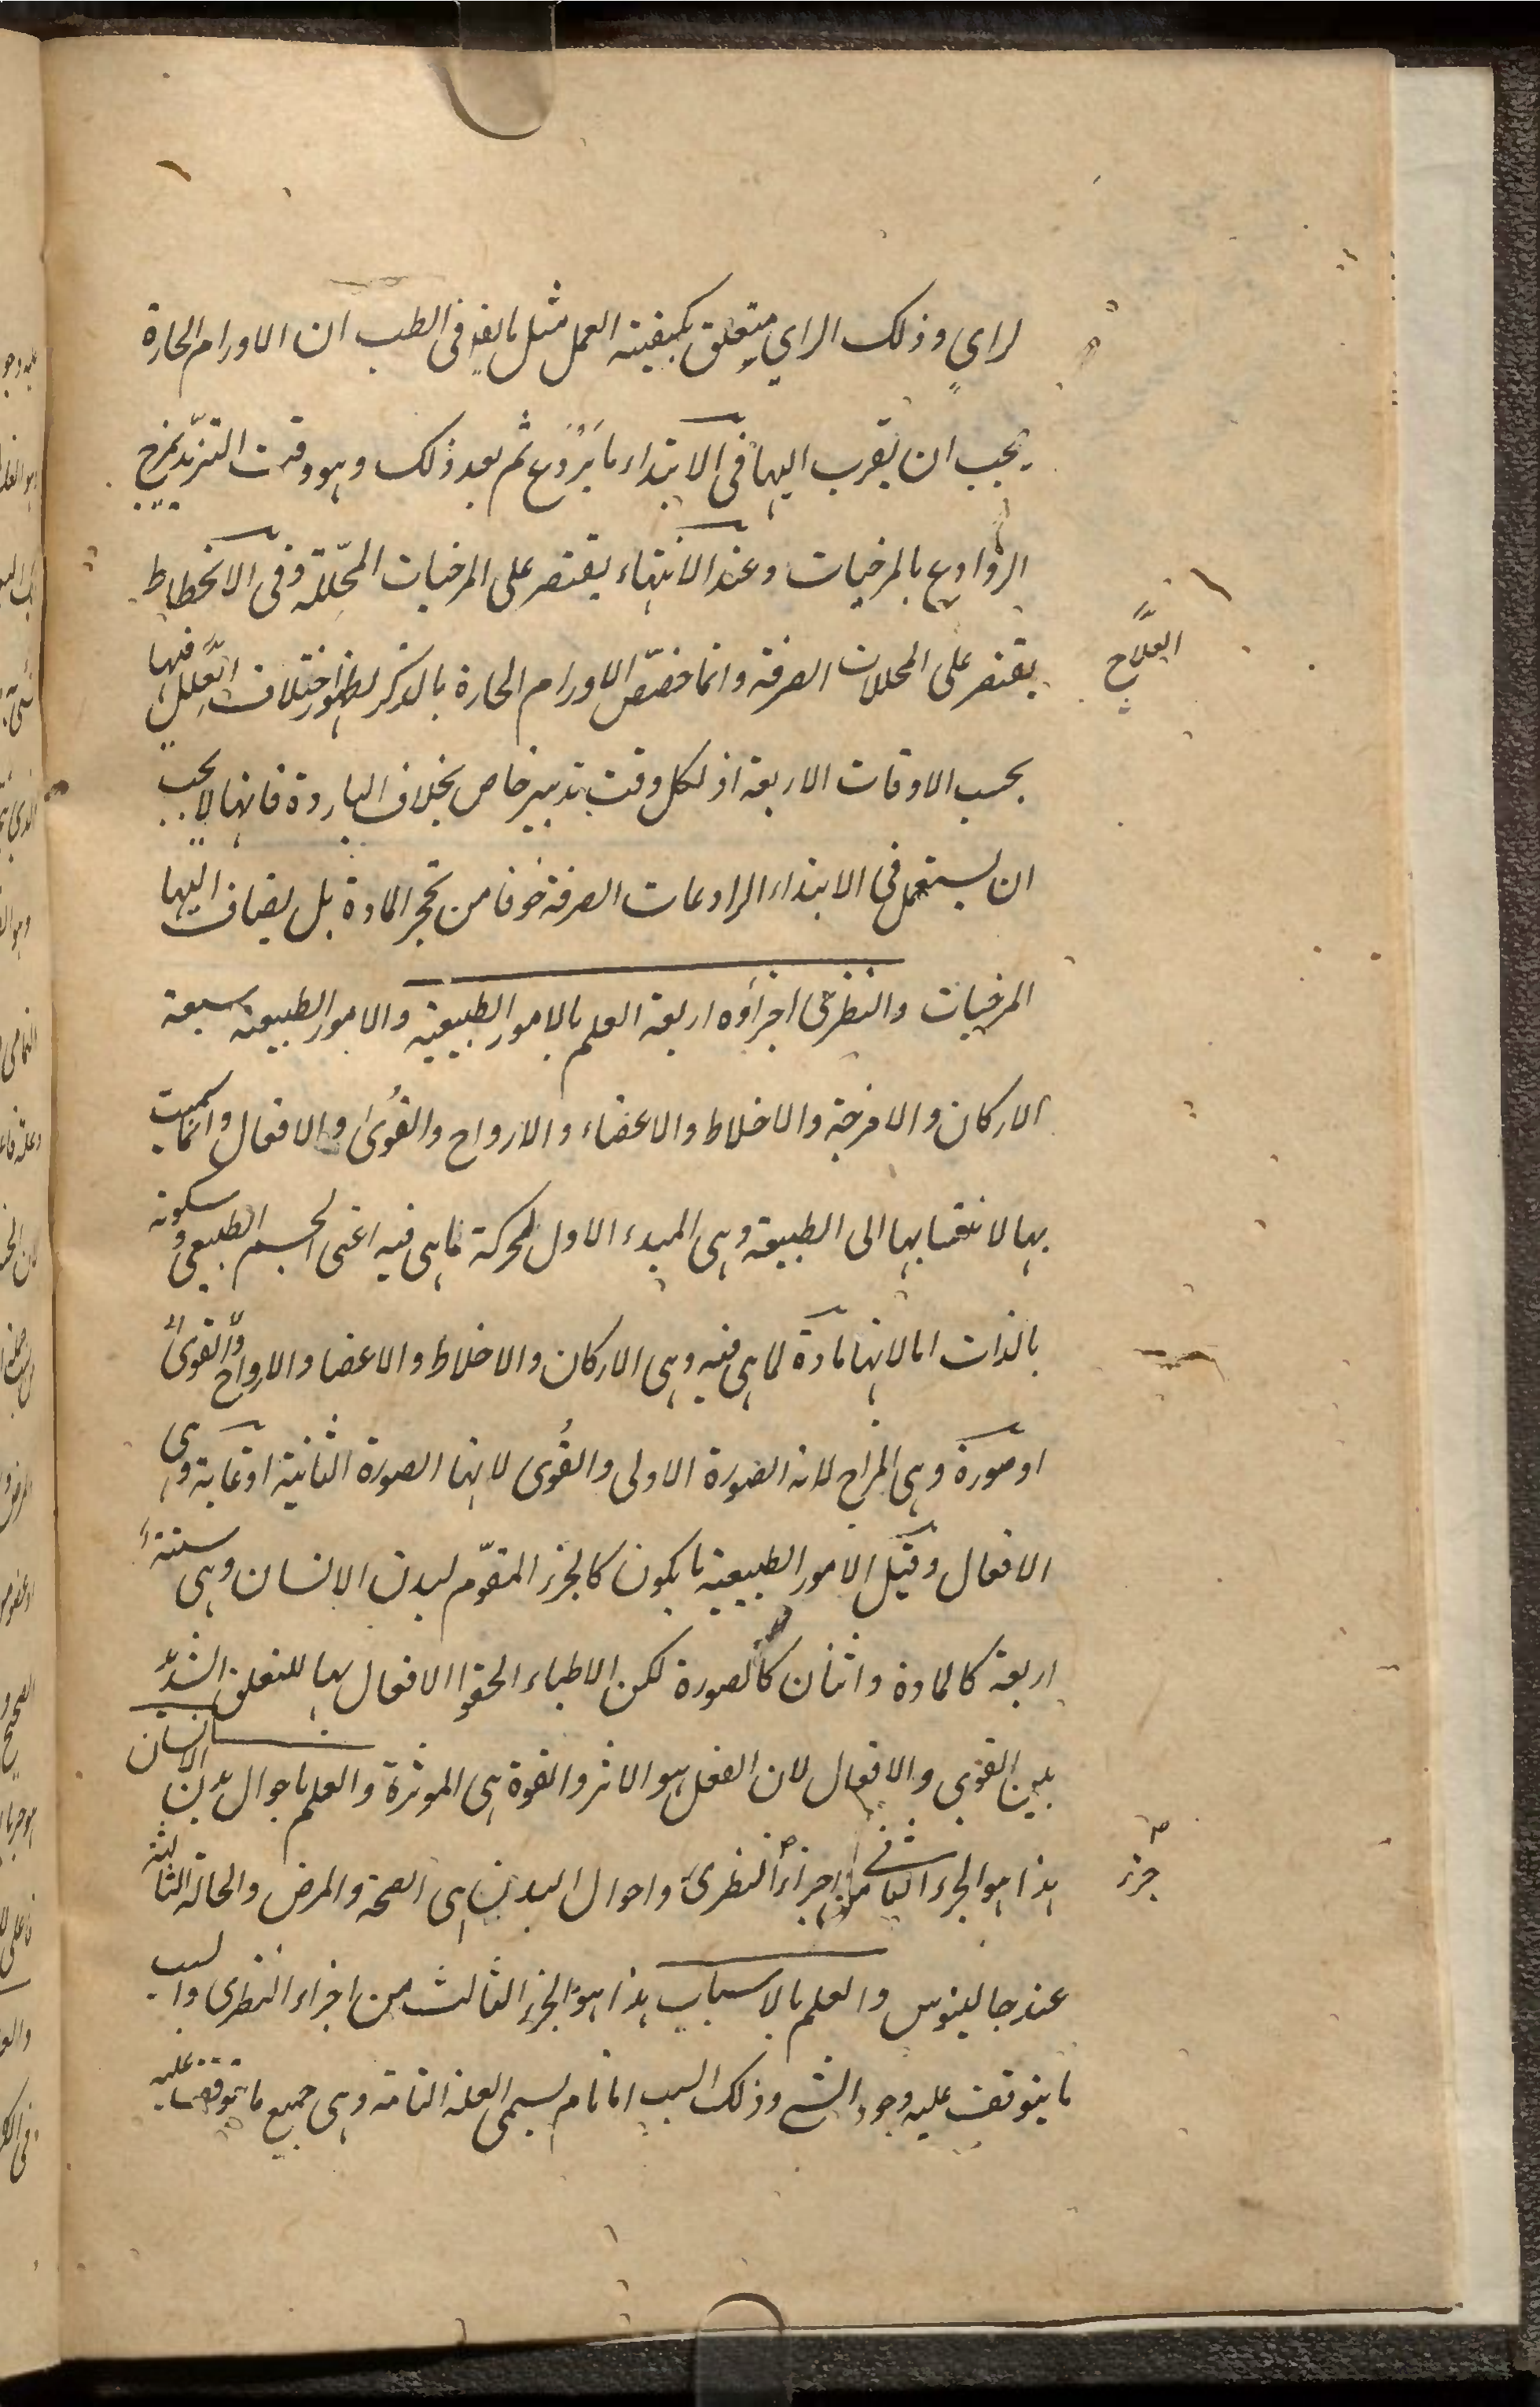 لراي وذلك الراي متعلق بكيفية العمل مثل ما يقر في الطب ان الاورام الحارة
يجب ان يقرب اليها في الابتداء ما يردع ثم بعد ذلك وهو وقت التزيد يمزج
الروادع بالمرخيات وعند الانتهاء يقتصر على المرخيات المحللة وفي الانحطاط
يقتصر على المحللات الصرفة وانما خص الاورام الحارة بالذكر لظهور اختلاف العلل فيها
العلاج
بحسب الاوقات الاربعة اذ لكل وقت تدبير خاص بخلاف الباردة فانها لا يجب
ان يستعمل في الابتداء الرادعات الصرفة خوفا من تحجر المادة بل يضاف اليها
المرخيات والنظري اجزاؤه اربعة العلم بالامور الطبيعية والامور الطبيعية سبعة
الاركان والامزجة والاخلاط والاعضاء والارواح والقوى والافعال وانما سميت
بها لانتسابها الى الطبيعة وهي المبدء الاول لحركة ما هي فيه اعني الجسم الطبيعي وسكونه
بالذات اما لانها مادة لما هي فيه وهي الاركان والاخلاط والاعضا والارواح والقوى
او صورة وهي المزاج لانه الصورة الاولى والقوى لانها الصورة الثانية او غاية وهي
الافعال وقيل الامور الطبيعية ما يكون كالجزء المقوّم لبدن الانسان وهي ستة
اربعة كالمادة واثنان كالصورة لكن الاطباء الحقوا الافعال بها للتعلق الشديد
بين القوى والافعال لان الفعل هو الاثر والقوة هي الموثرة والعلم باحوال بدن الانسان
هذا هو الجزء الثاني من اجزاء النظري واحوال البدن هي الصحة والمرض والحالة الثالثة
جزء
عند جالينوس والعلم بالاسباب هذا هو الجزء الثالث من اجزاء النظري والسبب
ما يتوقف عليه وجود الشي وذلك السبب اما تام يسمى العلة التامة وهي جميع ما يتوقف عليه